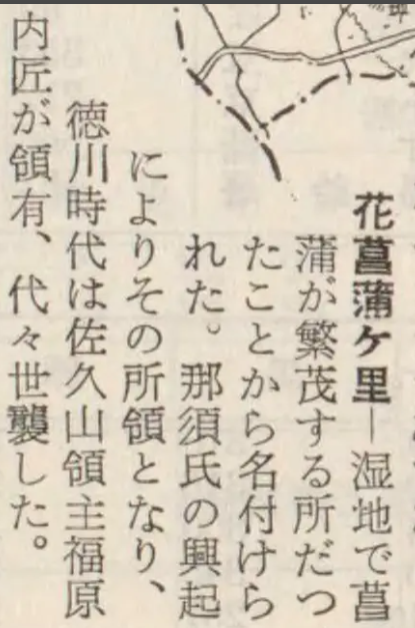 花菖蒲ケ里―湿地で菖
蒲が繁茂する所だつ
たことから名付けら
れた。那須氏の興起
によりその所領となり、
徳川時代は佐久山領主福原
内匠が領有、代々世襲した。